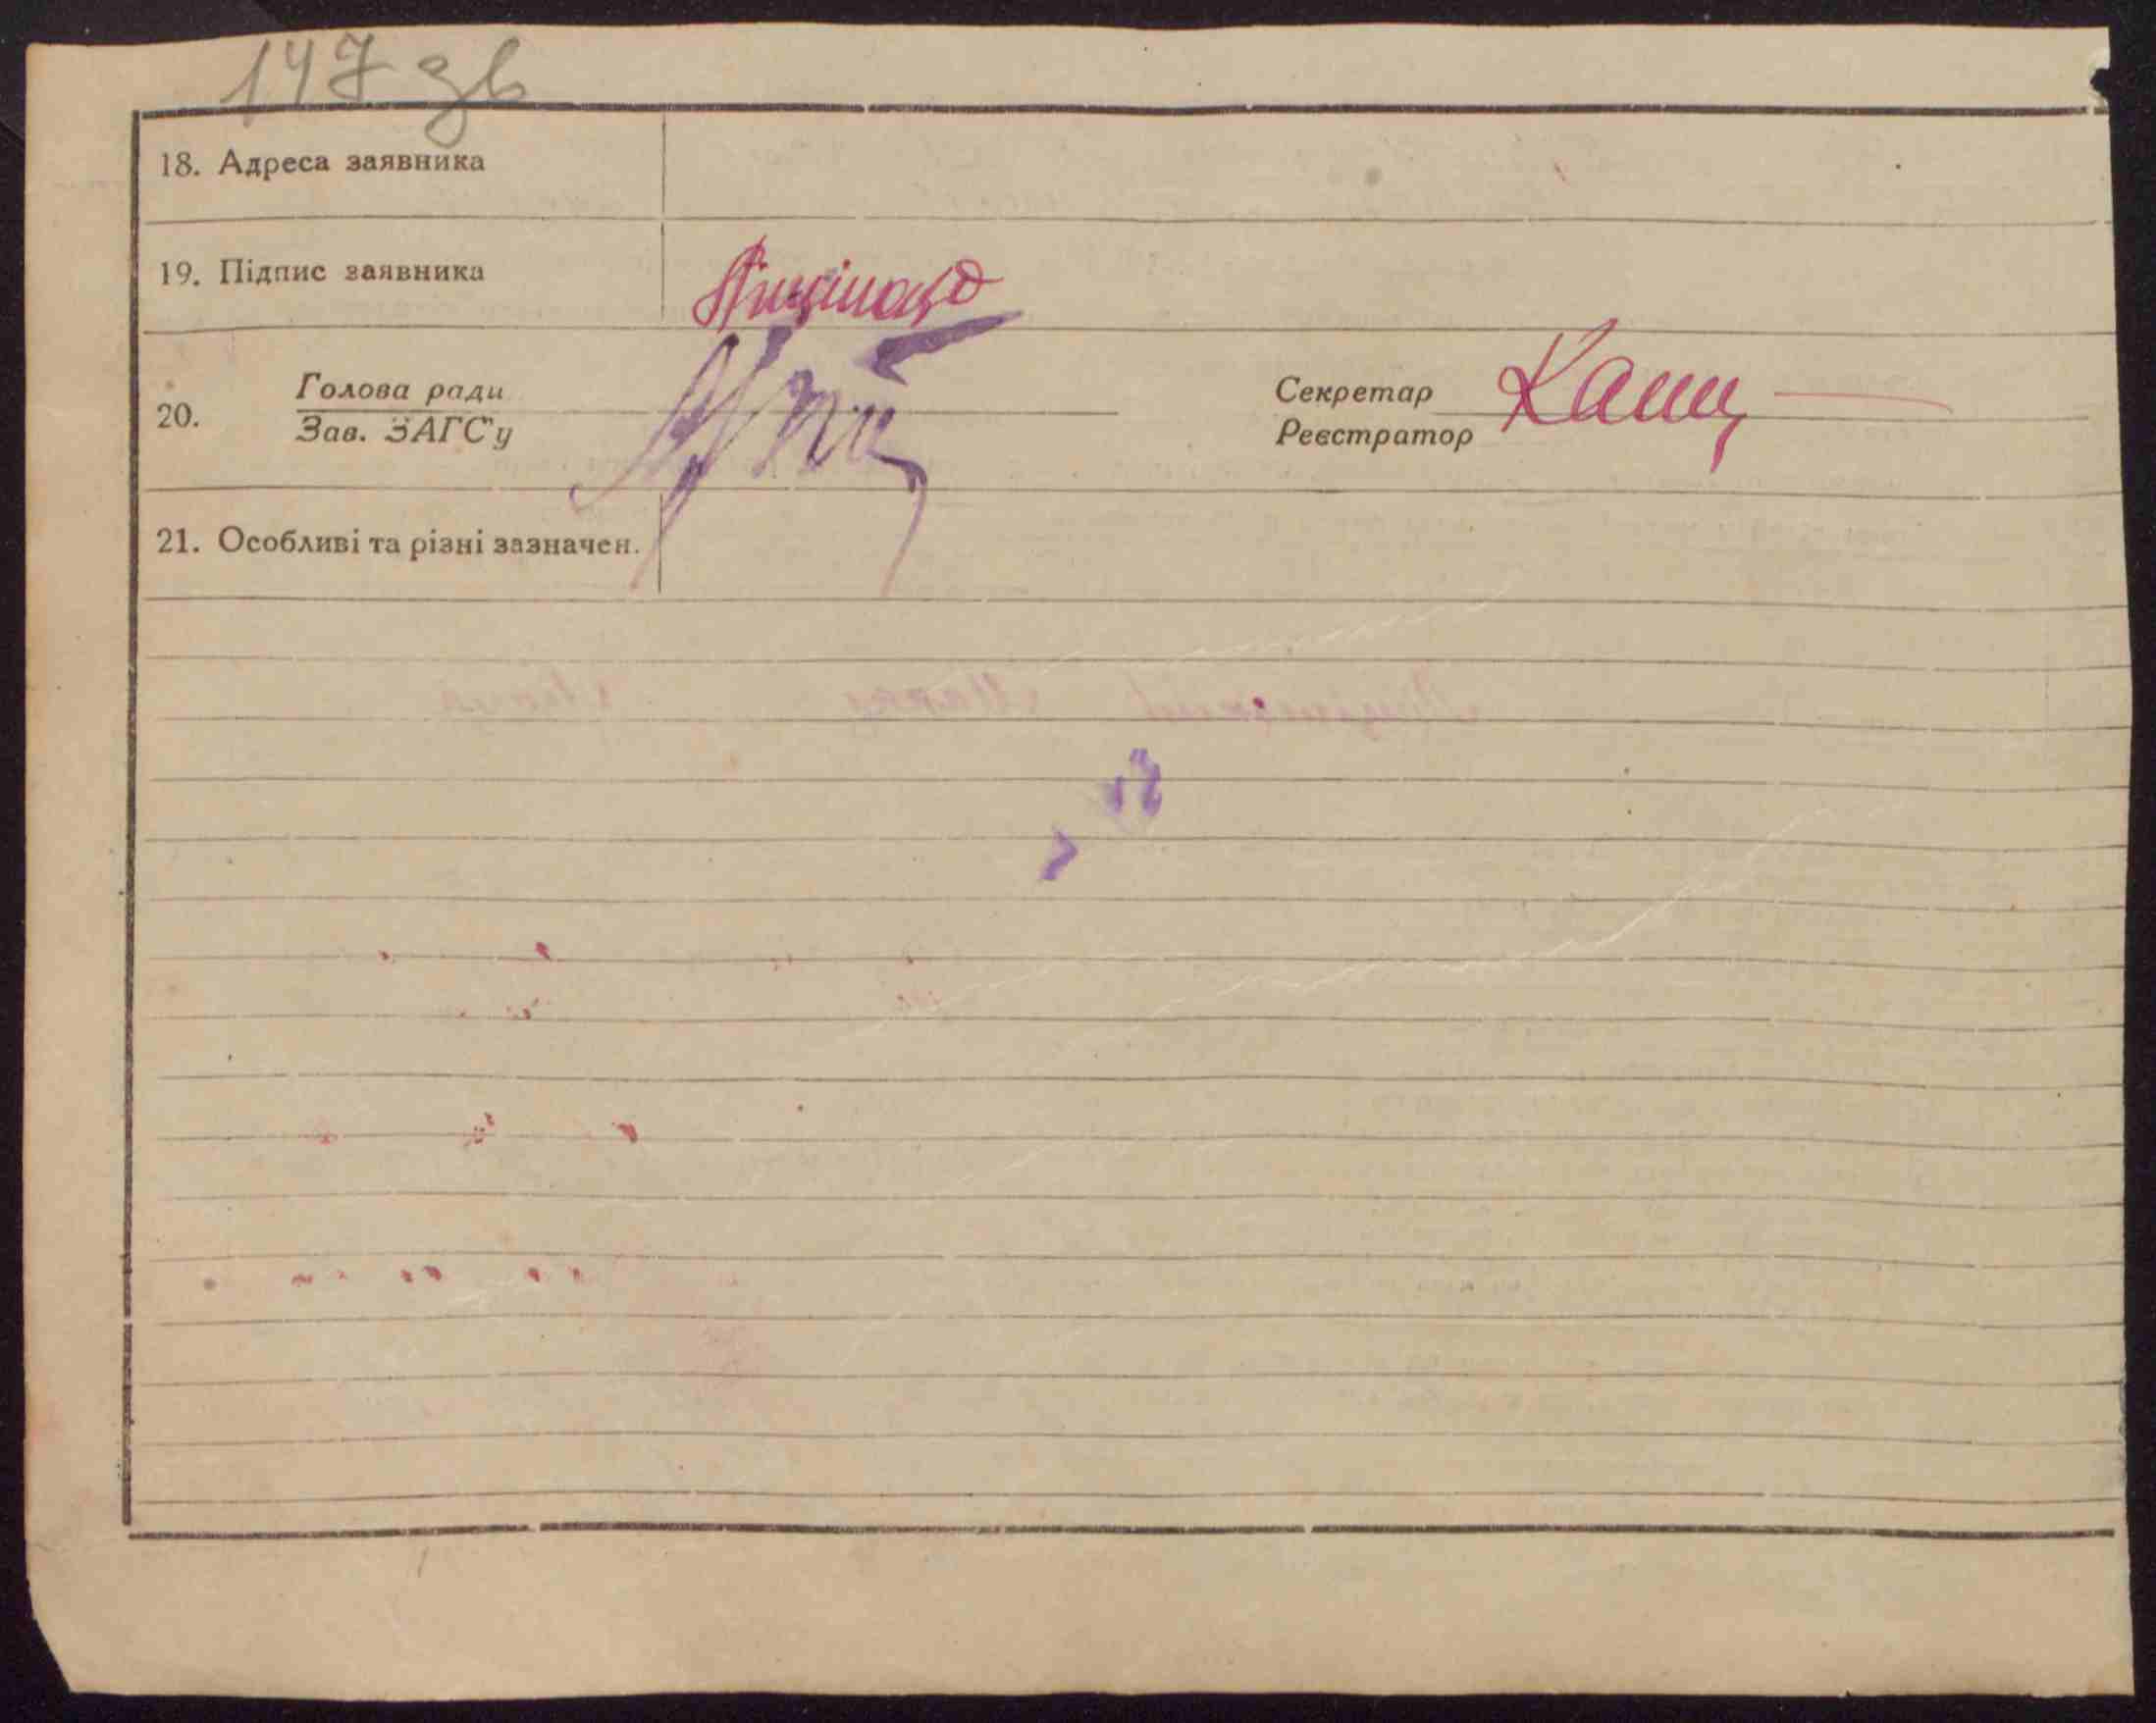 147 зв
18. Адреса заявника
19. Підпис заявника
20. Голова ради
Зав. ЗАГС'у
Секретар
Реєстратор
21. Особливі та різні зазначен.